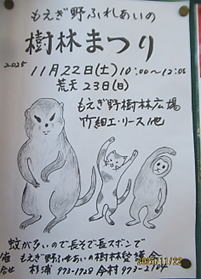 もえぎ野ふれあいの
樹林まつり
2025
11月22日(土)10:00~12:00
荒天23日(日)
もえぎ野樹林広場
竹細工・リース他
蚊が多いので長そで長ズボンで
もえぎ野ふれあいの樹林愛護会
杉浦 973-1728 今村 973-2104